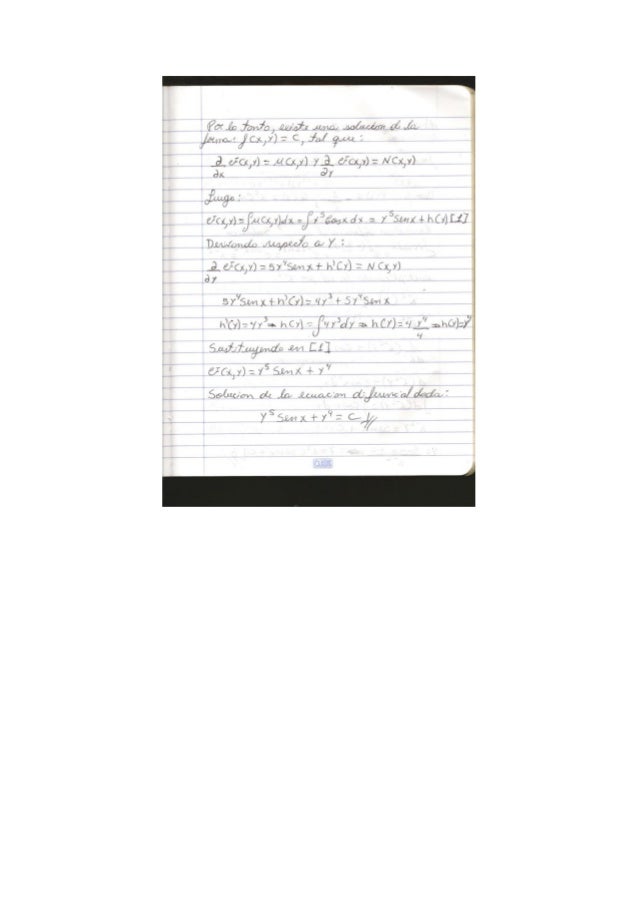 Por lo tanto, existe una solucion de la
forma: f(x,y) = C, tal que:
∂/∂x f(x,y) = M(x,y) y ∂/∂y f(x,y) = N(x,y)
Luego:
f(x,y) = ∫M(x,y)dx = ∫y⁵Cosx dx = y⁵Senx + h(y) [1]
Derivando respecto a y:
∂/∂y f(x,y) = 5y⁴Senx + h'(y) = N(x,y)
5y⁴Senx + h'(y) = 4y³ + 5y⁴Senx
h'(y) = 4y³ ⇒ h(y) = ∫4y³dy ⇒ h(y) = 4 y⁴/4 ⇒ h(y) = y⁴
Sustituyendo en [1]
f(x,y) = y⁵Senx + y⁴
Solucion de la ecuacion diferencial dada:
y⁵Senx + y⁴ = C //